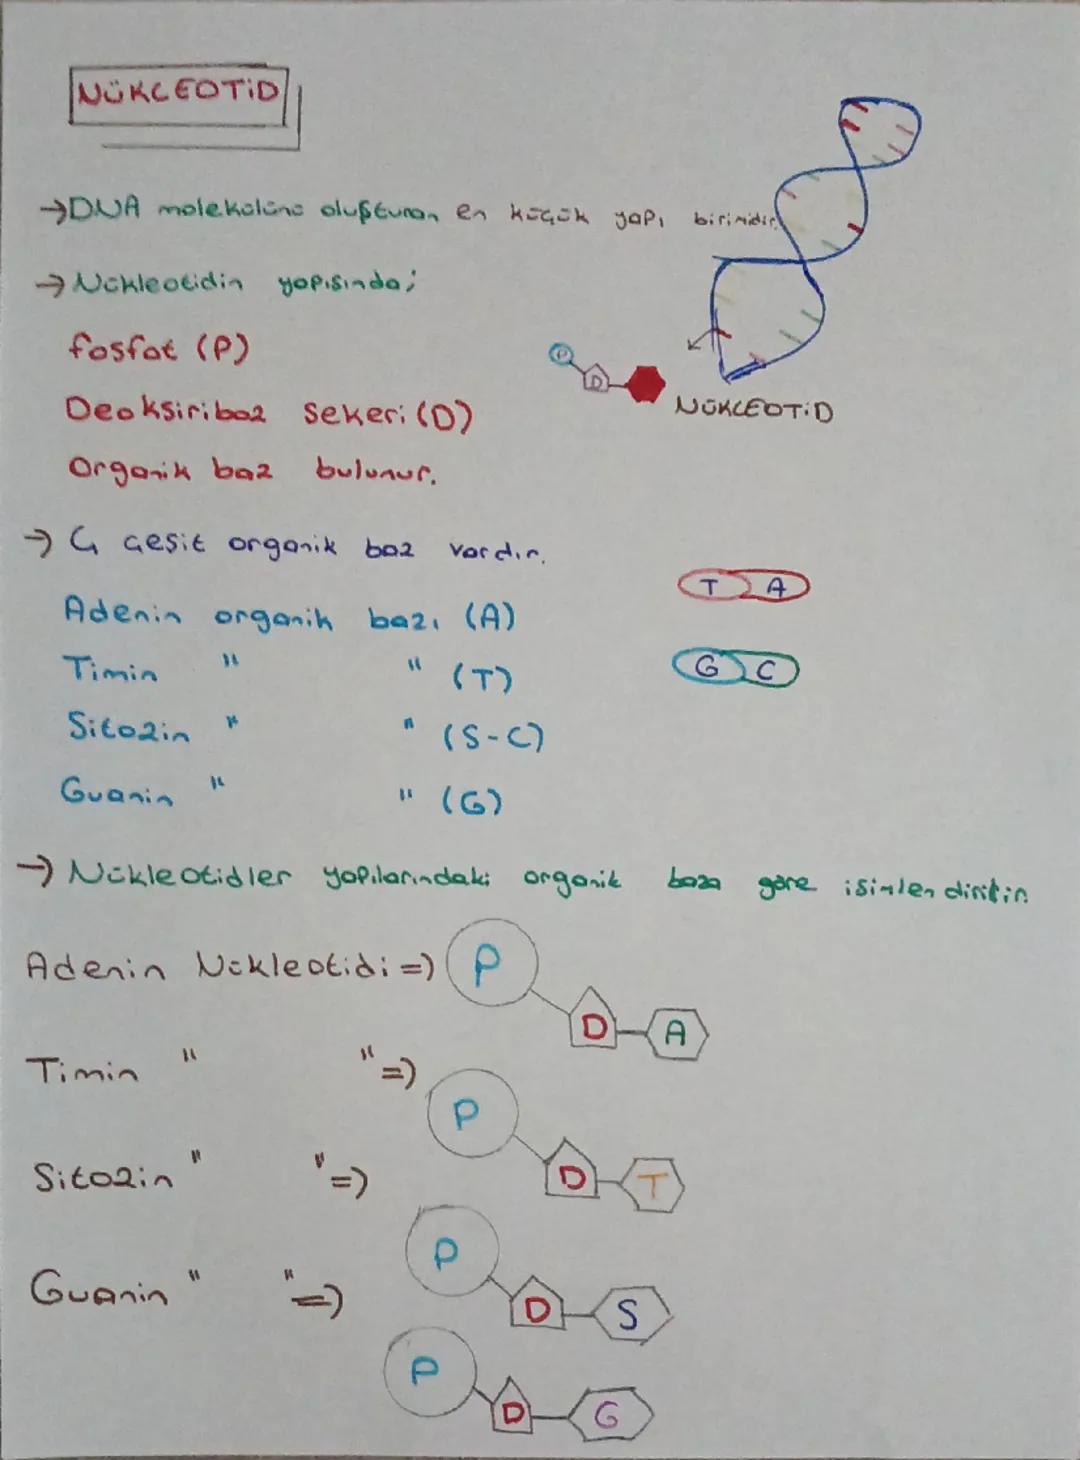 NÜKLEOTİD
→DNA molekülünü oluşturan en küçük yapı birimidir.
→Nükleotidin yapısında;
fosfat (P)
Deoksiriboz Şekeri (D)
Organik baz bulunur.
P
D
NÜKLEOTİD
→ 4 çeşit organik baz vardır.
Adenin organik bazı (A)
Timin " " (T)
Sitozin " " (S-C)
Guanin " " (G)
T A
G C
→ Nükleotidler yapılarındaki organik baza göre isimlendirilir.
Adenin Nükleotidi => P D A
Timin " " => P D T
Sitozin " " => P D S
Guanin " " => P D G